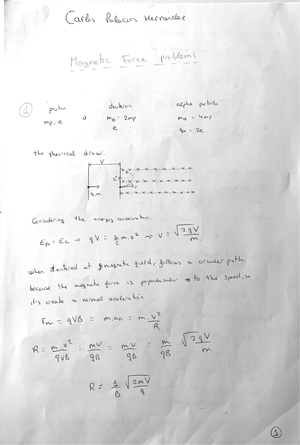 Carlos Palacios Hernandez
Magnetic Force problems
1
proton deutron alpha particle
mp, e m_D = 2mp m_α = 4mp
e q_α = 2e
The theorical draw:
V
q, m
Considering the energy conservation
Ep = Ec → qV = 1/2 m.v² → v = √(2qV/m)
magnetic field, follows a circular path
because the magnetic force is perpendicular to the speed, so
it's create a normal aceleration
Fm = qVB = m.an = m v²/R
R = m v²/qVB = mv/qB = m.v/qB = m/qB √(2qV/m)
R = 1/B √(2mV/q)
1